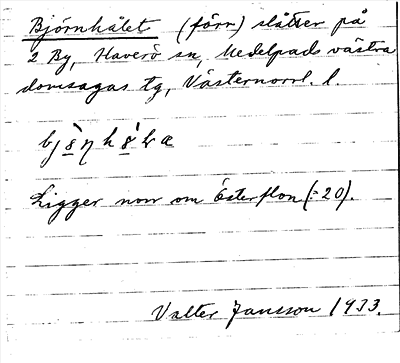 Björnhålet (förr) slåtter på
2 By, Haverö sn, Medelpads västra
domsagas tg, Västernorrl. l.
Ligger norr om Österflon (=20).
Valter Jansson 1933.